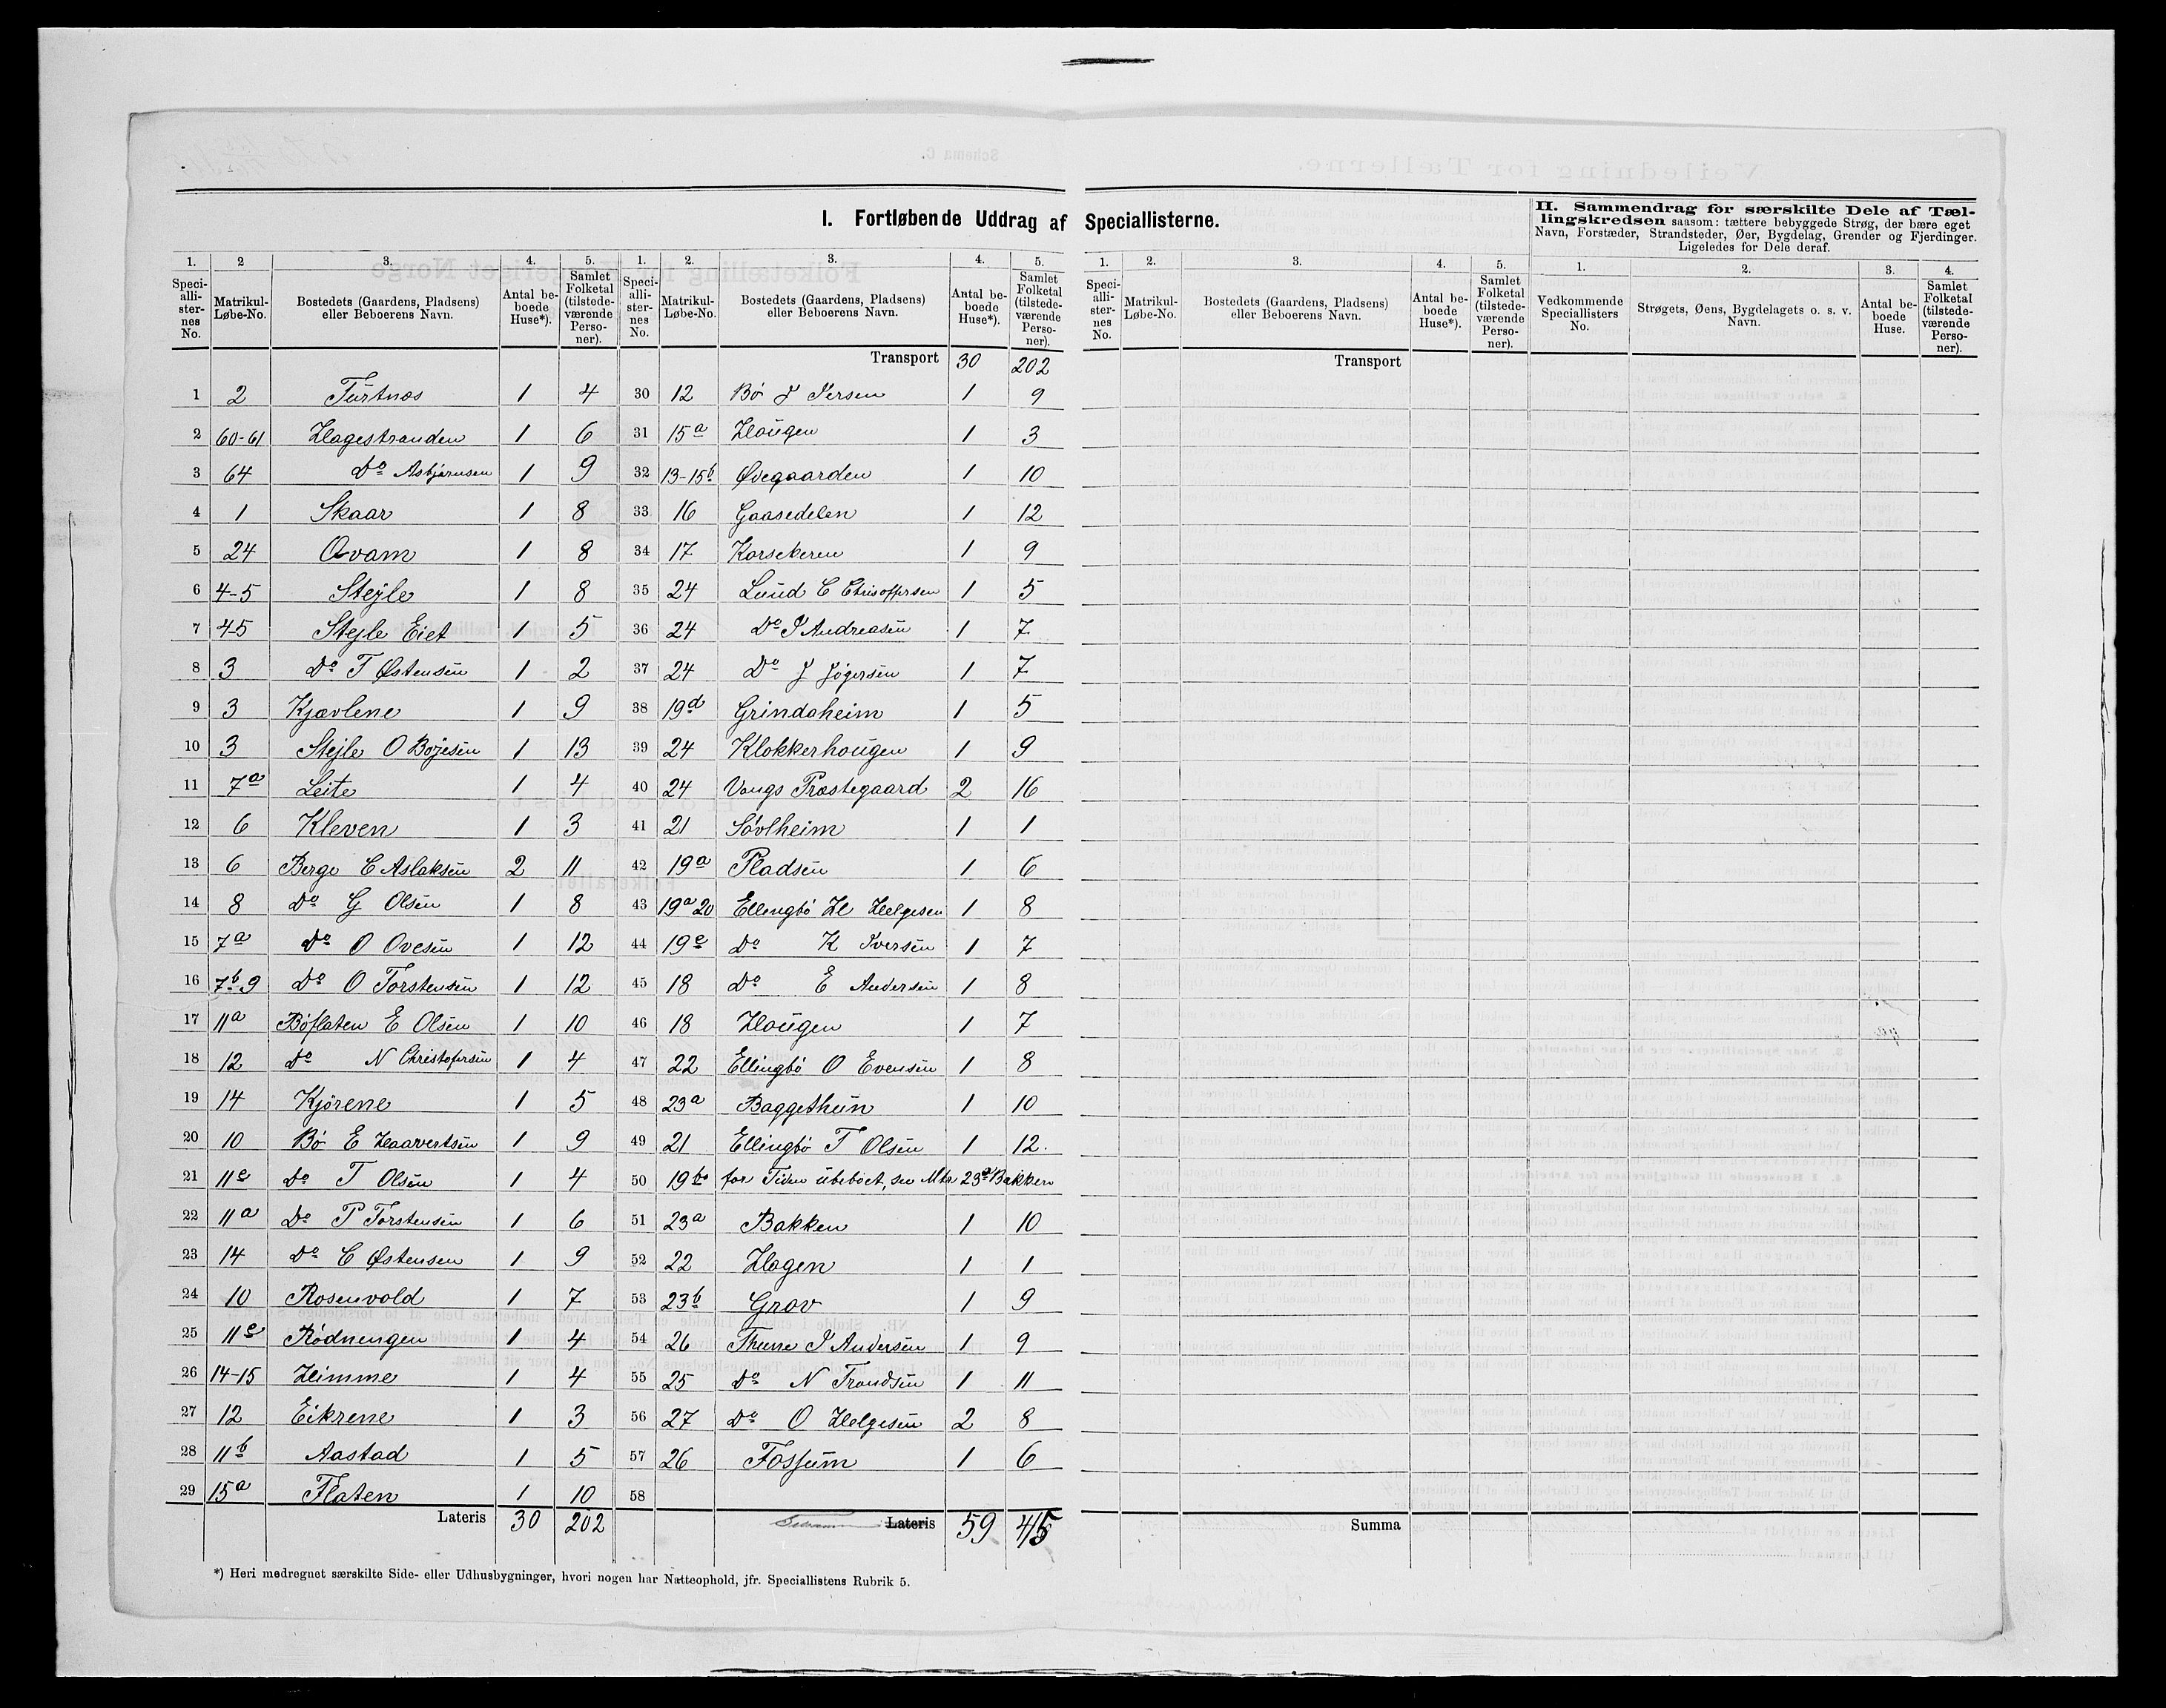 I. Fortløbende Uddrag af Speciallisterne.
II. Sammendrag for særskilte Dele af Tæl-
lingskredsen saasom: tættere bebyggede Strøg, der bære eget
Navn, Forstæder, Strandsteder, Øer, Bygdelag, Grender og Fjerdinger.
Ligeledes for Dele deraf.
1. 2 3. 4. 5. 1. 2. 3. 4. 5. 1. 2. 3. 4. 5. 1. 2. 3. 4.
Speci-alli-ster-nes No. Matrikul-Løbe-No. Bostedets (Gaardens, Pladsens) eller Beboerens Navn. Antal be-boede Huse*). Samlet Folketal (tilstede-værende Perso-ner).
Speci-alli-ster-nes No. Matrikul-Løbe-No. Bostedets (Gaardens, Pladsens) eller Beboerens Navn. Antal be-boede Huse*). Samlet Folketal (tilstede-værende Perso-ner).
Speci-alli-ster-nes No. Matrikul-Løbe-No. Bostedets (Gaardens, Pladsens) eller Beboerens Navn. Antal be-boede Huse*). Samlet Folketal (tilstede-værende Perso-ner).
Vedkommende Speciallisters No. Strøgets, Øens, Bygdelagets o. s. v. Navn. Antal be-boede Huse. Samlet Folketal (tilstede-værende Perso-ner).
1 2 Turtnæs 1 4
2 60-61 Hagestranden 1 6
3 64 Do Asbjørnsen 1 9
4 1 Skaar 1 8
5 24 Qvam 1 8
6 4-5 Stejle 1 8
7 4-5 Stejle Eiet 1 5
8 3 Do T Østensen 1 2
9 3 Kjævlene 1 9
10 3 Stejle O Bojesen 1 13
11 7a Leite 1 4
12 6 Kleven 1 3
13 6 Berge C Aslaksen 2 11
14 8 Do G Olsen 1 8
15 7a Do O Ovesen 1 12
16 7b 9 Do O Torstensen 1 12
17 11a Bøflaten E Olsen 1 10
18 12 Do N Christofersen 1 4
19 14 Kjørene 1 5
20 10 Bø E Haavertsen 1 9
21 11c Do T Olsen 1 4
22 11a Do P Torstensen 1 6
23 14 Do C Østensen 1 9
24 10 Rosenvold 1 7
25 11c Rødningen 1 4
26 14-15 Himme 1 4
27 12 Eikrene 1 3
28 11b Aastad 1 5
29 15a Flaten 1 10
Lateris 30 202
Transport 30 202
30 12 Bø J Iversen 1 9
31 15a Haugen 1 3
32 13-15b Ødegaarden 1 10
33 16 Gaasedelen 1 12
34 17 Korsekeren 1 9
35 24 Lund C Chrisoffersen 1 5
36 24 Do I Andreasen 1 7
37 24 Do J Jøgersen 1 7
38 19d Grindaheim 1 5
39 24 Klokkerhougen 1 9
40 24 Vangs Præstegaard 2 16
41 21 Søvlheim 1 1
42 19a Pladsen 1 6
43 19a 20 Ellingbø H Helgesen 1 8
44 19c Do K Iversen 1 7
45 18 Do E Andersen 1 8
46 18 Haugen 1 7
47 22 Ellingbø O Evensen 1 8
48 23a Baggethun 1 10
49 21 Ellingbø T Olsen 1 12.
50 19b for Tiden ubeboet, se Mtr 23a Bakken
51 23a Bakken 1 10
52 22 Hagen 1 1
53 23b Grov 1 9
54 26 Thune I Andersen 1 9
55 25 Do N Trondsen 1 11
56 27 Do O Helgesen 2 8
57 26 Fossum 1 6
58
Lateris 59 415
Transport
Summa
*) Heri medregnet særskilte Side- eller Udhusbygninger, hvori nogen har Natteophold, jfr. Speciallistens Rubrik 5.